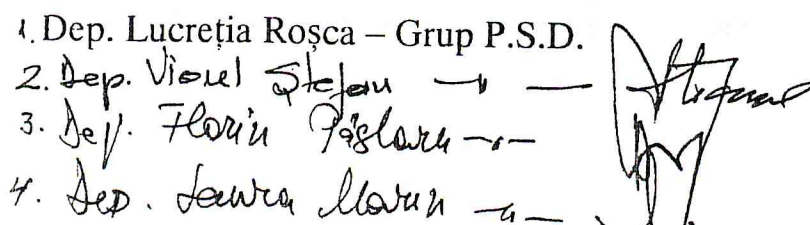 1. Dep. Lucreția Roșca – Grup P.S.D.
2. Dep. Viorel Ștefan —〃—
3. Dep. Florin Pâslaru —〃—
4. Dep. Laura Marin —〃—